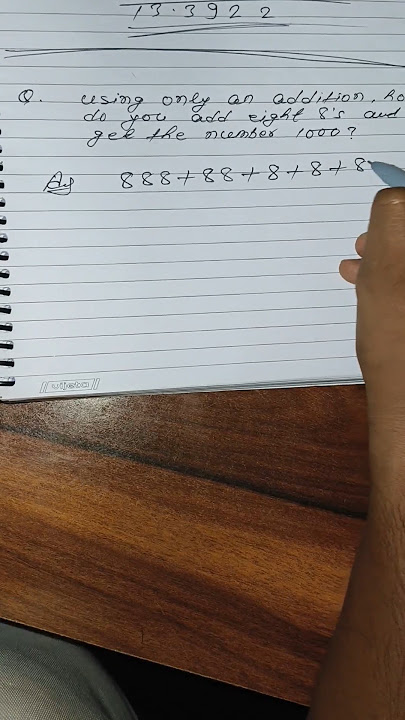 13.3922
Q. using only an addition, ho
do you add eight 8's and
get the number 1000?
Ay 888+88+8+8+8
vijeta